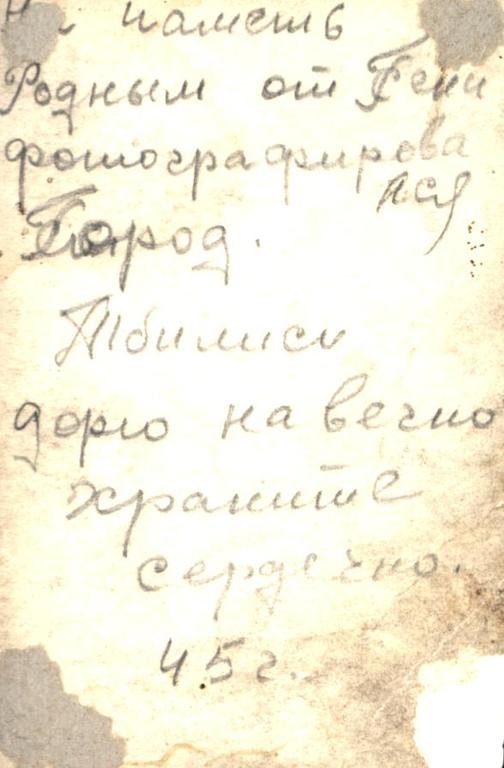 На паметь
Родным от Гени
фотографирова
лся
Город.
Тбилиси
дорю на вечно
храните
сердечно.
45 г.